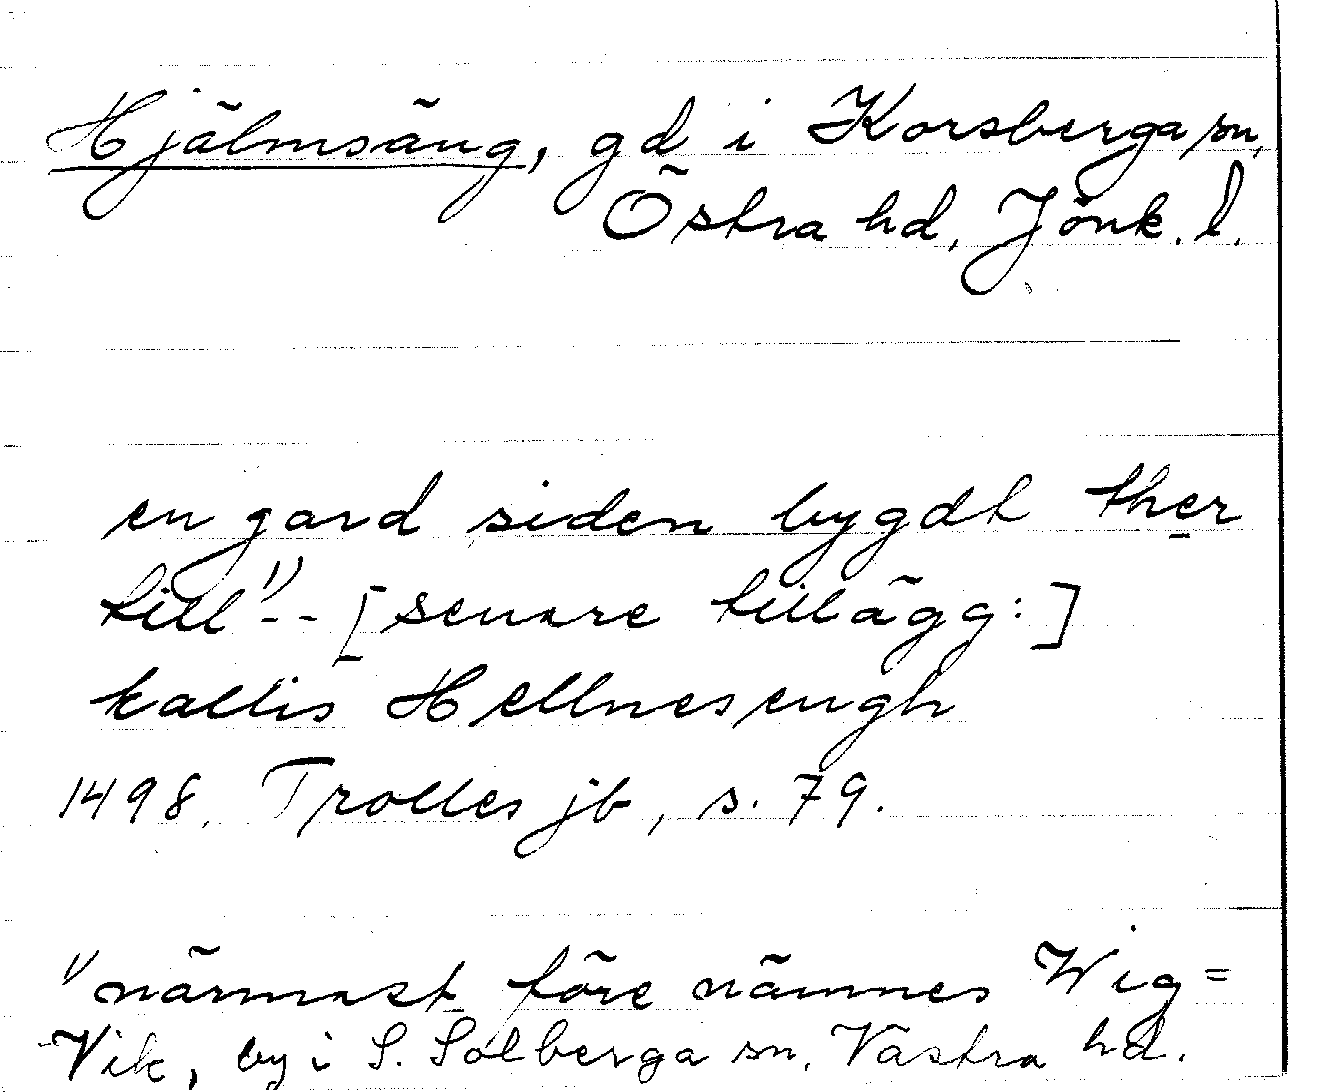 Hjälmsäng, gd i Korsberga sn,
Östra hd, Jönk. l.
en gard siden bygdt ther
till 1) -- [senare tillägg:]
kallis Hellnesengh
1498. Trolles jb, s. 79.
1) närmast före nämnes Wig =
Vik, by i S. Solberga sn. Västra hd.